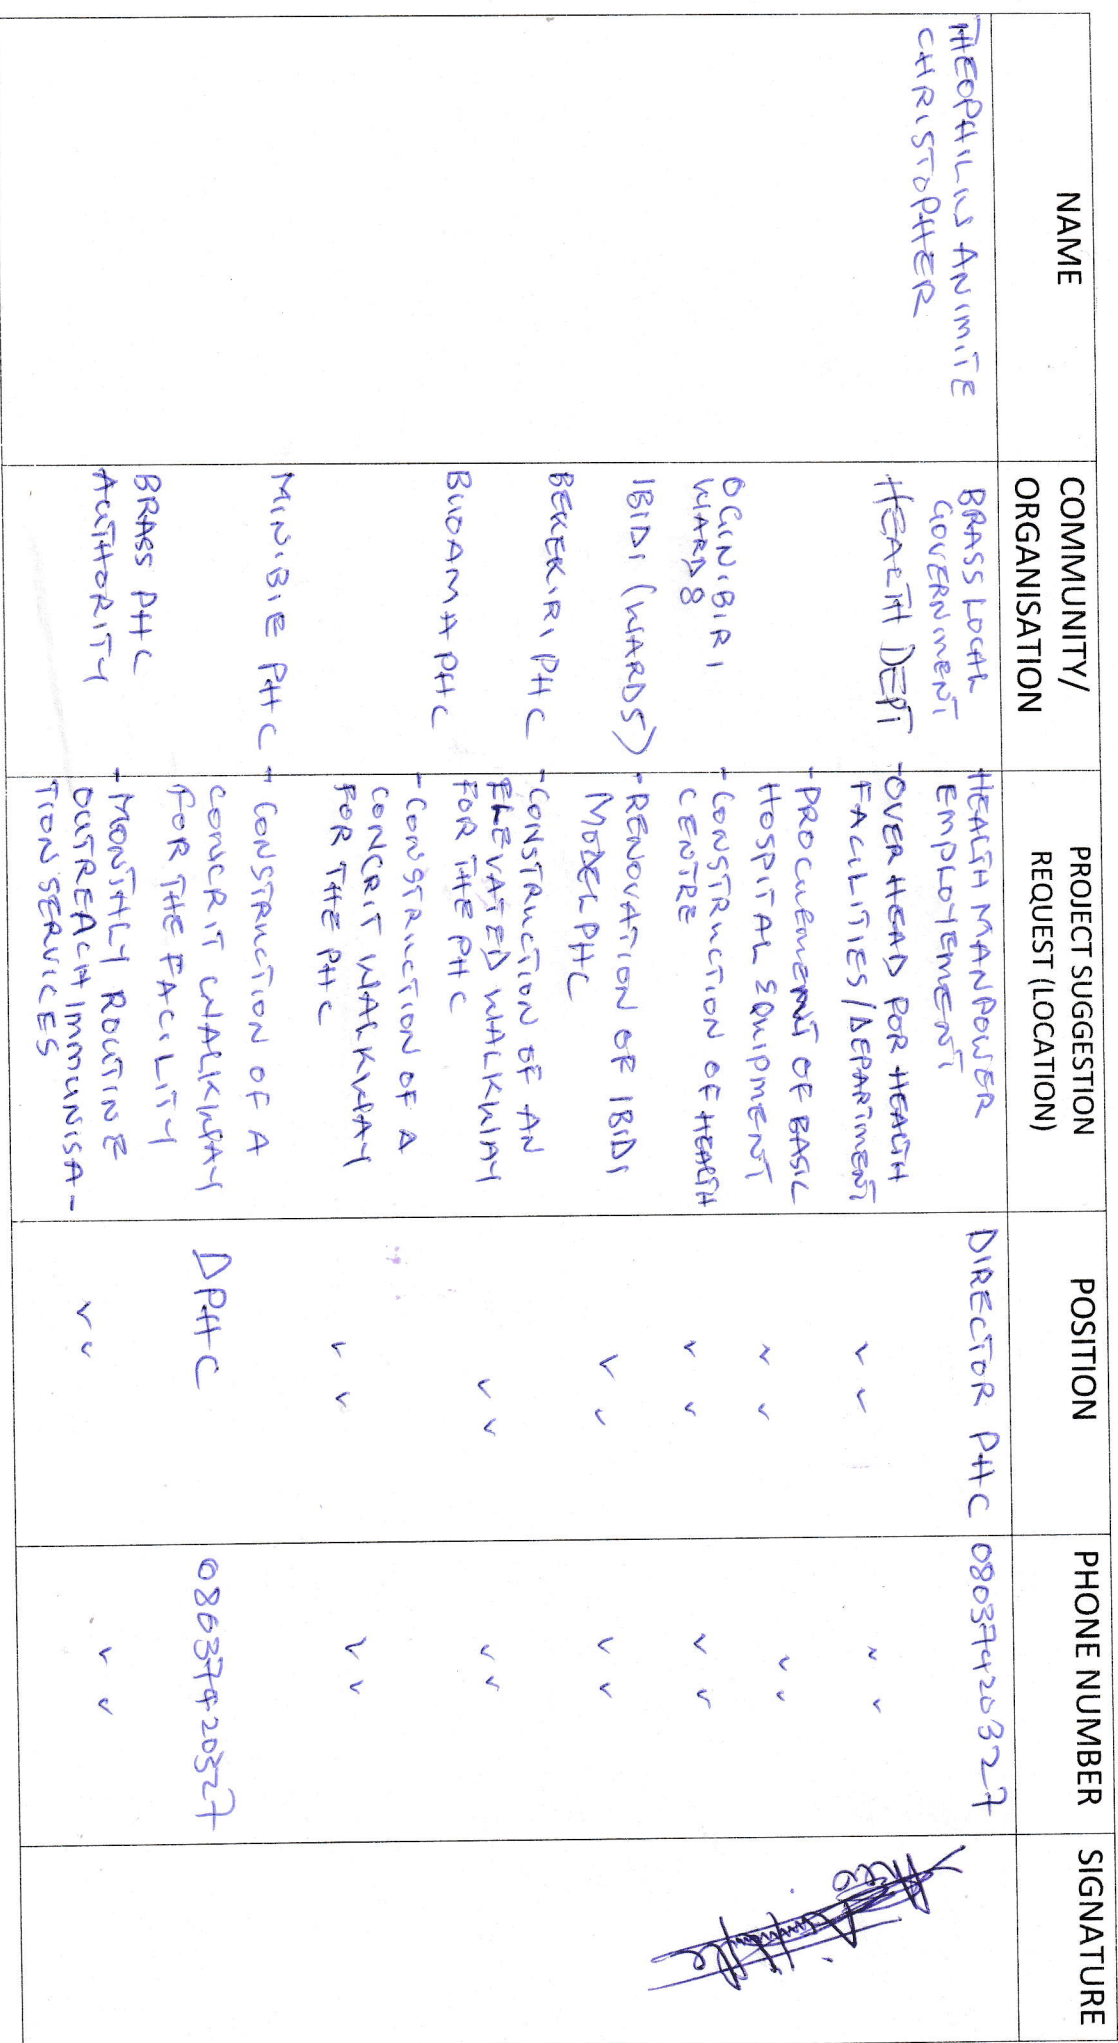 NAME
COMMUNITY/
ORGANISATION
PROJECT SUGGESTION
REQUEST (LOCATION)
POSITION
PHONE NUMBER
SIGNATURE
THEOPHILUS ANIMITE
CHRISTOPHER
BRASS LOCAL
GOVERNMENT
HEALTH DEPT
- HEALTH MANPOWER
EMPLOYEMENT
DIRECTOR PHC
08037420327
- OVER HEAD FOR HEALTH
FACILITIES/DEPARTMENT
✓ ✓
✓ ✓
- PROCUEMENT OF BASIC
HOSPITAL EQUIPMENT
✓ ✓
✓ ✓
OGINIBIRI
WARD 8
- CONSTRUCTION OF HEALTH
CENTRE
✓ ✓
✓ ✓
IBIDI (WARD 5)
- RENOVATION OF IBIDI
MODEL PHC
✓ ✓
✓ ✓
BEKEKIRI PHC
- CONSTRUCTION OF AN
ELEVATED WALKWAY
FOR THE PHC
✓ ✓
✓ ✓
BUOAMA PHC
- CONSTRUCTION OF A
CONCRIT WALKWAY
FOR THE PHC
✓ ✓
✓ ✓
MINIBIE PHC
- CONSTRUCTION OF A
CONCRIT WALKWAY
FOR THE FACILITY
DPHC
08037420327
BRASS PHC
AUTHORITY
- MONTHLY ROUTINE
OUTREACH IMMUNISA-
TION SERVICES
✓ ✓
✓ ✓